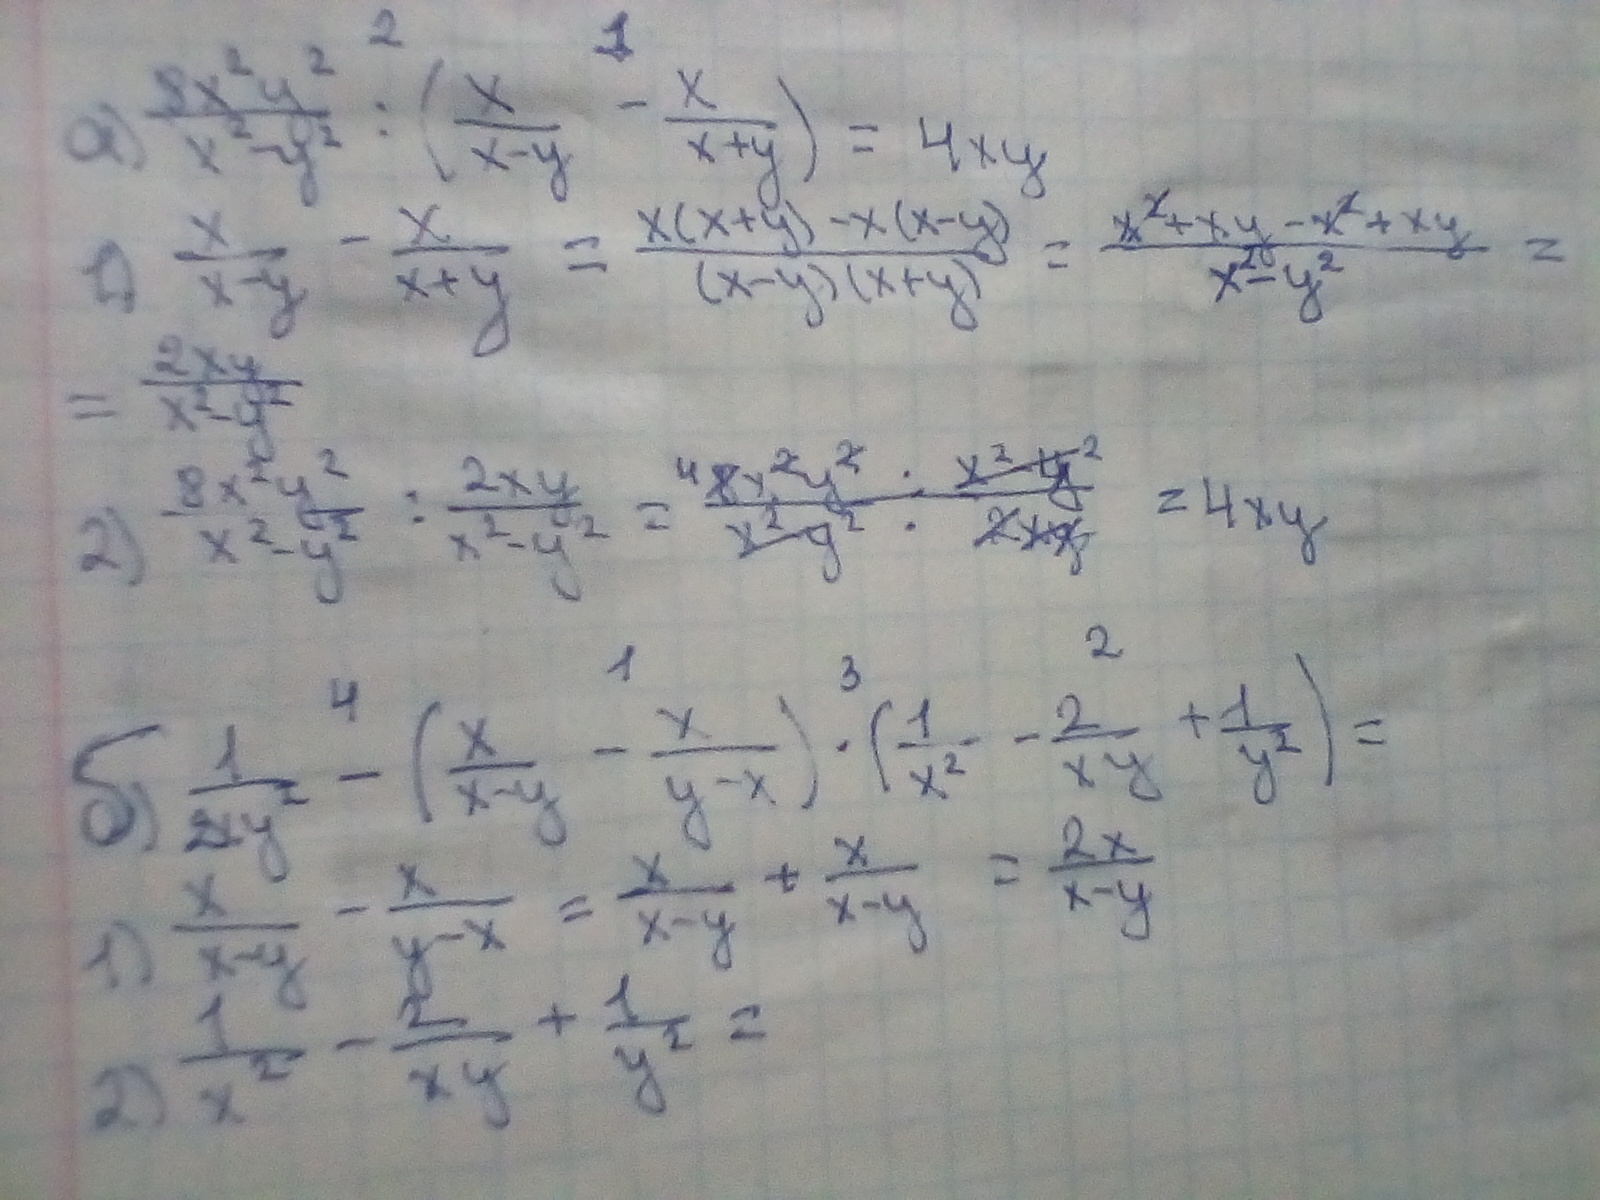 а) 8x²y²/(x²-y²) :² (x/(x-y) -¹ x/(x+y)) = 4xy
1) x/(x-y) - x/(x+y) = (x(x+y) - x(x-y))/((x-y)(x+y)) = (x²+xy-x²+xy)/(x²-y²) =
= 2xy/(x²-y²)
2) 8x²y²/(x²-y²) : 2xy/(x²-y²) = ⁴8x²y²/(x²-y²) · (x²-y²)/(2xy) = 4xy
б) 1/(2xy²) -⁴ (x/(x-y) -¹ x/(y-x)) ·³ (1/x² - 2/(xy) +² 1/y²) =
1) x/(x-y) - x/(y-x) = x/(x-y) + x/(x-y) = 2x/(x-y)
2) 1/x² - 2/(xy) + 1/y² =